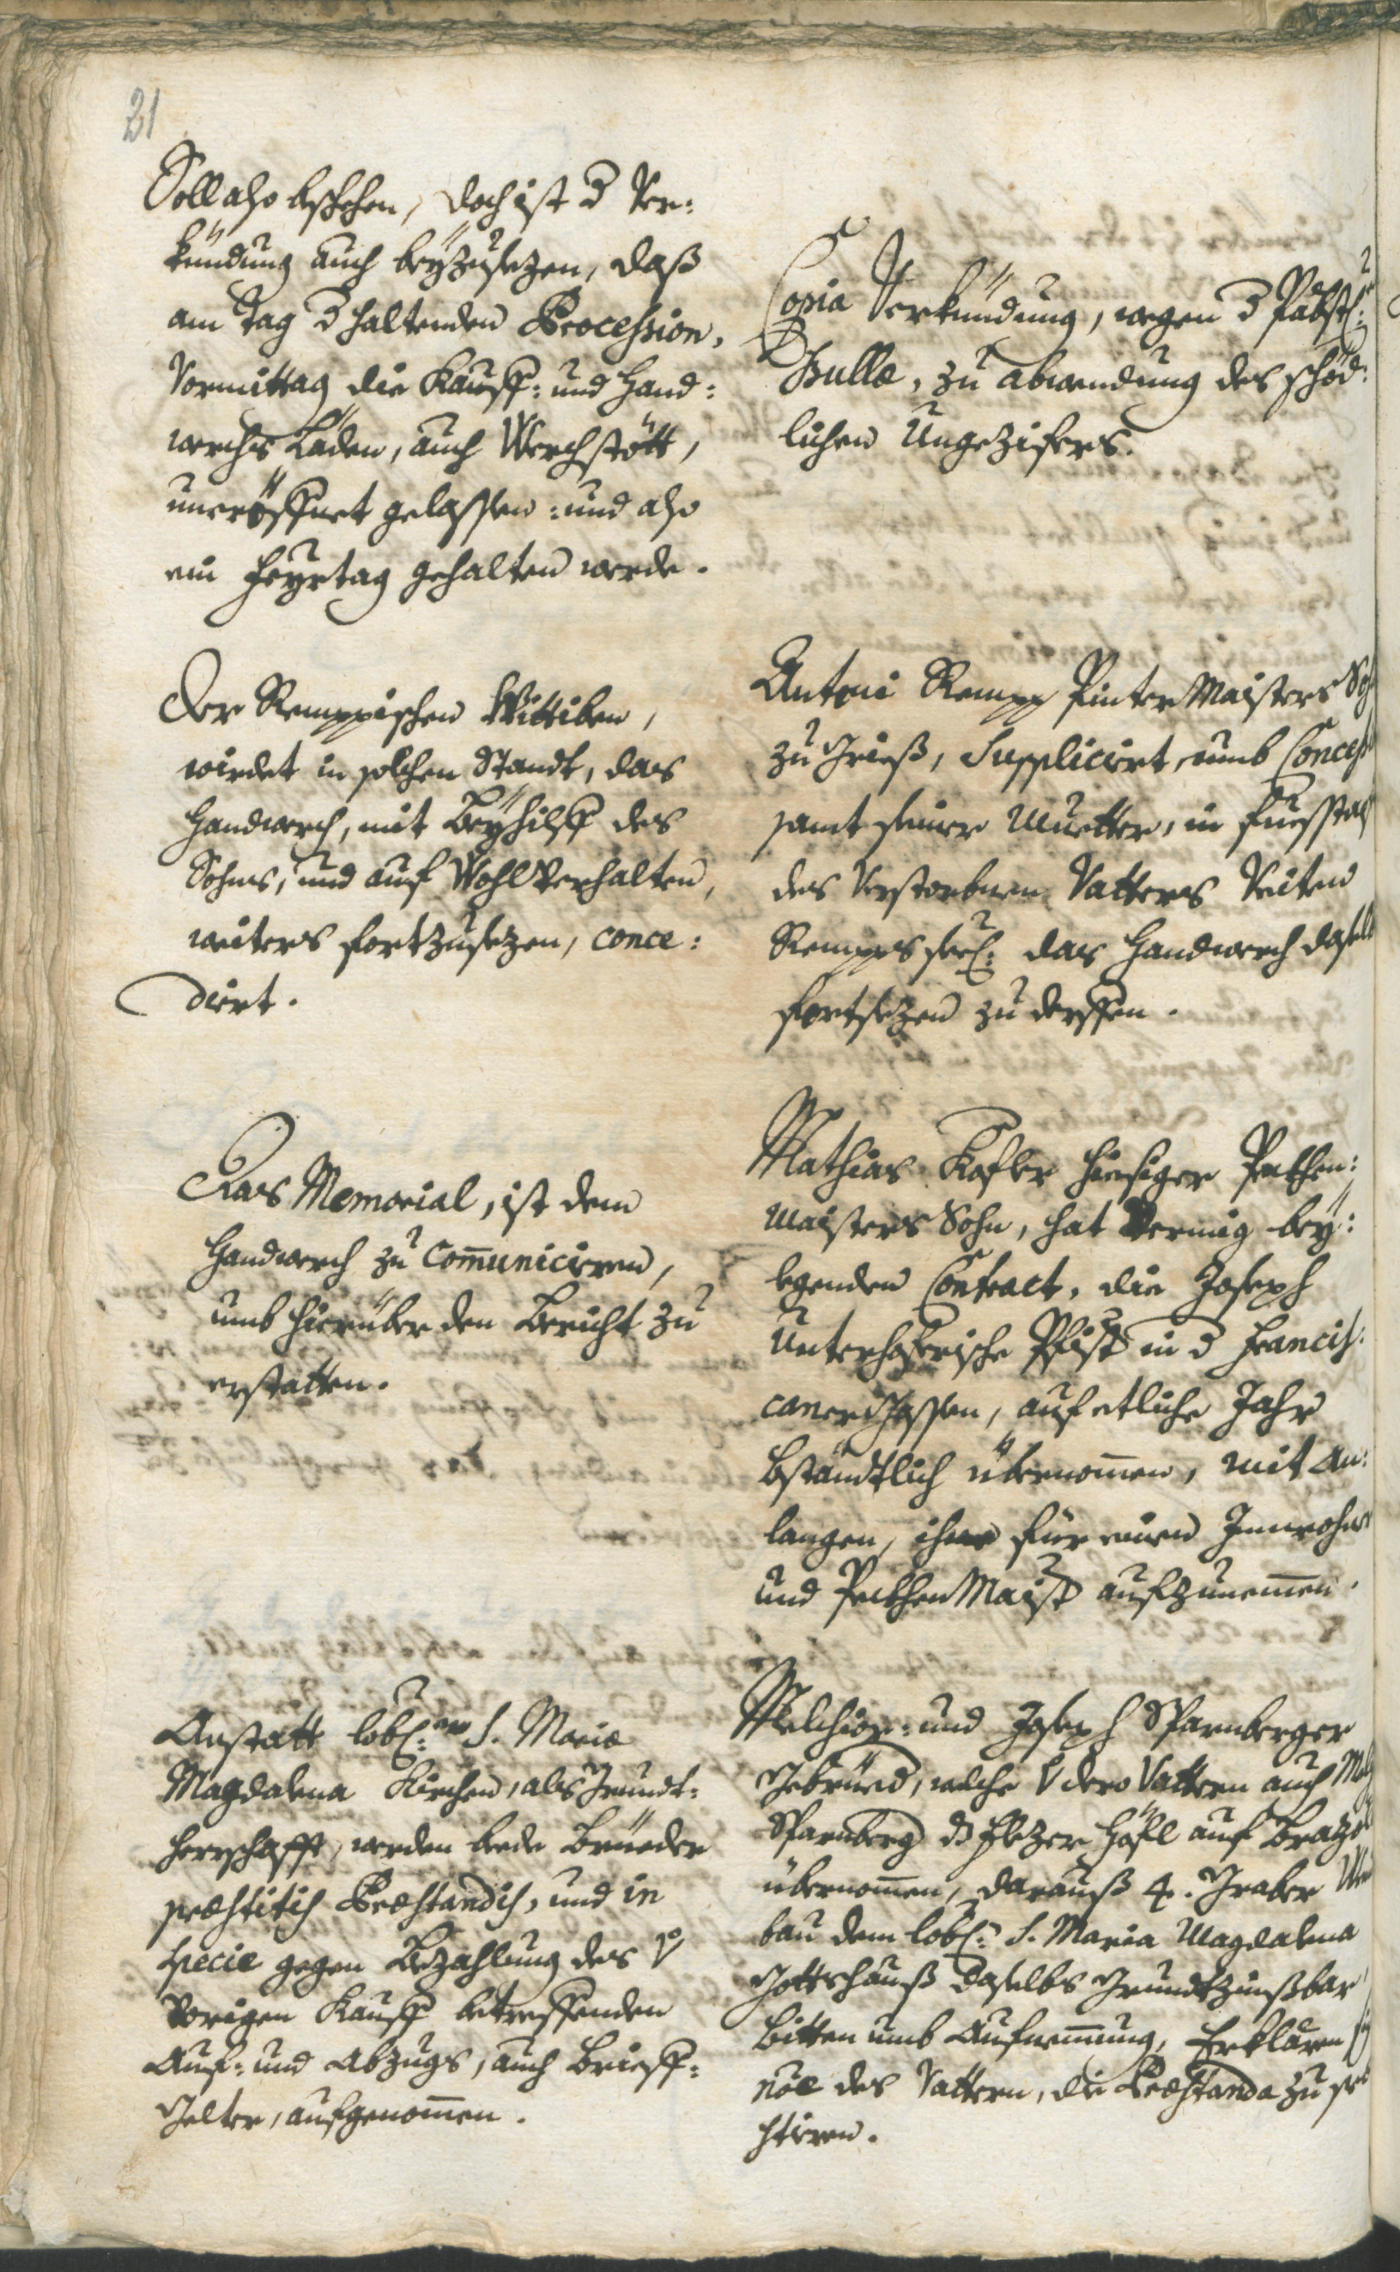 21
Soll also bschehen, doch ist d Ver:
kündung auch beyzusezen, daß
am Tag d haltenden Procession,
Vormittag die Kauff: und Hand:
werchs Läden, auch Werchstött,
uneröffnet gelassen: und also
ein Feyrtag gehalten werde.
Copia Verkündung, wegen d Päbstl:
Bulla, zu abwendung des schöd:
lichen Ungezifers.
Der Remppischen Wittiben,
wirdet in solchen Standt, das
Handwerch, mit Beyhilff des
Sohns, und auf Wohlverhalten,
weiters fortzusezen, conce:
dirt.
Antoni Rempp Pinter Maisters Soh
zu Grieß, Supplicirt, umb Concess
samt seiner Muetter, in
des Verstorbnen Vatters Veiten
Rempps seel: das Handwerch daselb
fortsezen zu derffen.
Das Memorial, ist dem
Handwerch zu communiciren,
umb hierüber den Bericht zu
erstatten.
Mathias Kofler hiesiger Pekhen:
maisters Sohn, hat Vermög bey:
legenden Contract, die Joseph
Unterhoferische Pfist in d Francis:
caner Gassen, auf etliche Jahr
bständtlich übernomen, mit An:
langen, ihne für einen Innwohner
und Pekhen Maist aufzunemen.
Anstatt lobl:en S. Maria
Magdalena Kirchen, als Grundt:
herrschafft, werden beede Brüeder
præstitis Præstandis, und in
specie gegen Bezahlung des
Vorigen Kauff betreffenden
Auf: und Abzugs, auch Brieff:
Gelter, aufgenomen.
Melchior: und Joseph Sparnberger
Gebrüed, welche v dero Vattern auch
Sparnberg ds Flezer Höfl auf
übernomen, darauß 4. Graber
bau dem lobl: S. Maria Magdalena
Gottshauß daselbs Grundtzinßbar
Bitten umb Aufnemung, Erklären
noe des Vattern, die Præstanda zu præ
stiren.